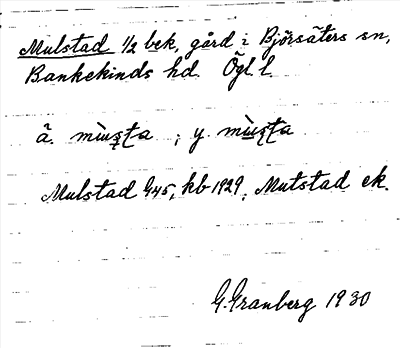 Mulstad 1/2 bek, gård i Björsäters sn,
Bankekinds hd. Ögl. l.
ä. ; y.
Mulstad G45, kb 1929, Mutstad ek.
G. Granberg 1930